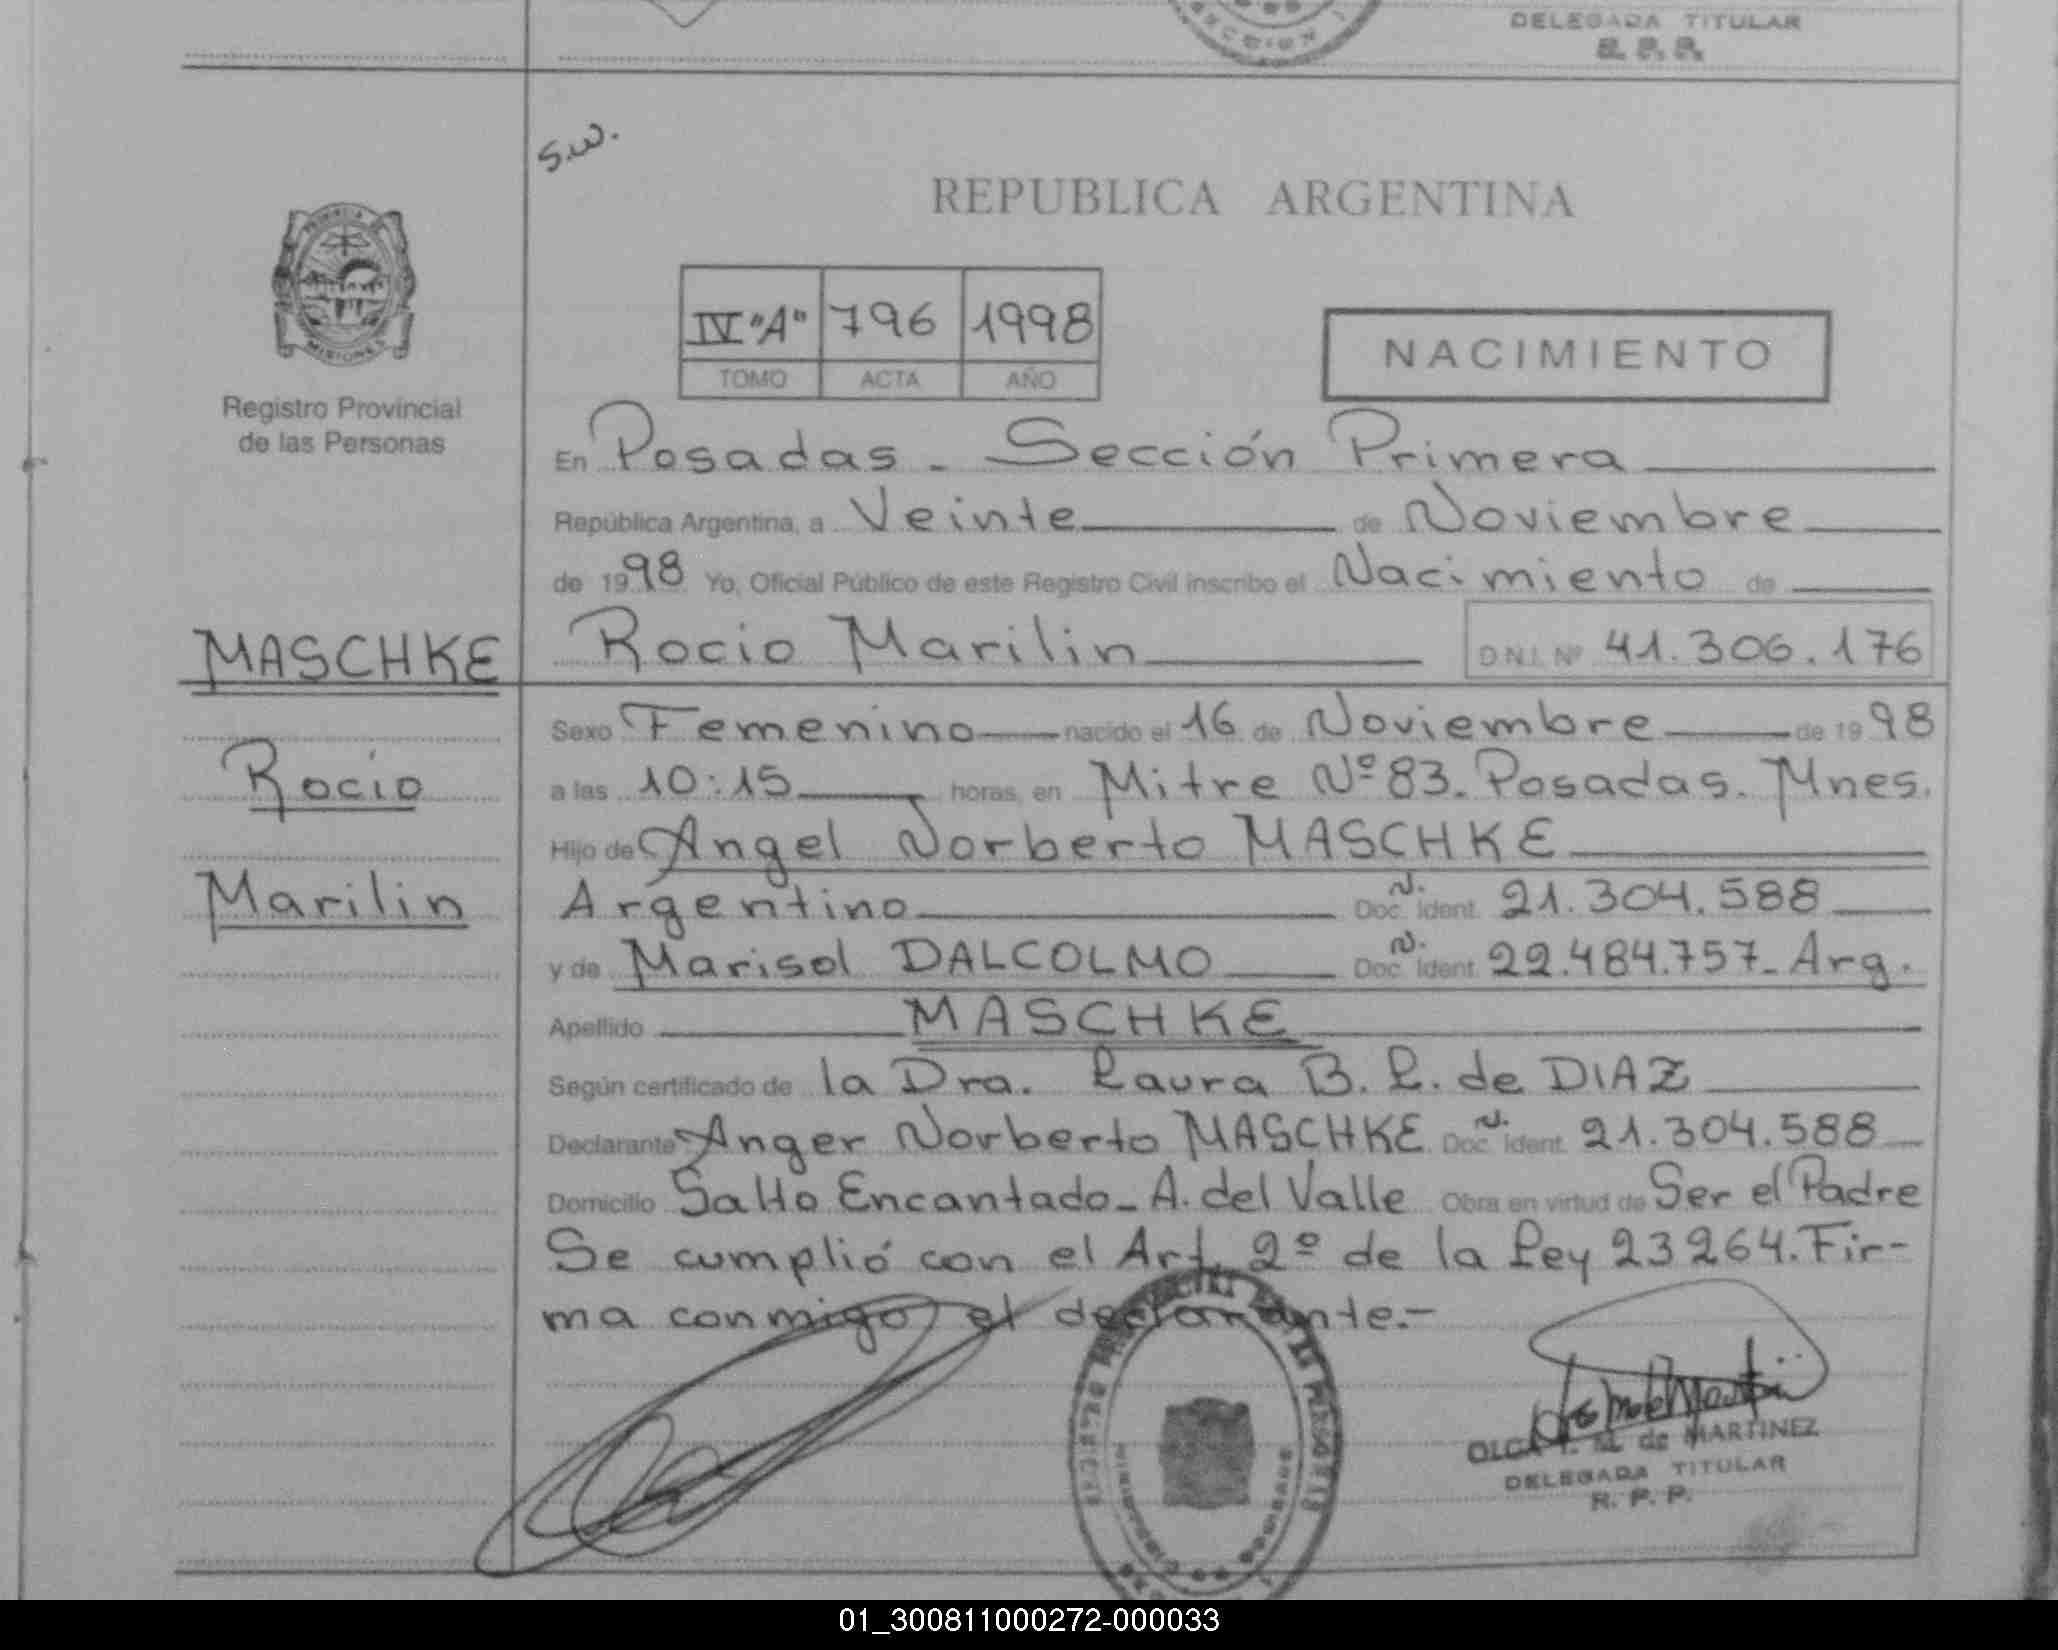 DELEGADA TITULAR
R. P. P.
S.W.
REPUBLICA ARGENTINA
PROVINCIA DE
MISIONES
Registro Provincial
de las Personas
IV "A" 796 1998
TOMO ACTA AÑO
NACIMIENTO
En Posadas - Sección Primera
República Argentina, a Veinte de Noviembre
de 1998 Yo, Oficial Público de este Registro Civil inscribo el Nacimiento de
MASCHKE Rocio Marilin D.N.I. Nº 41.306.176
Sexo Femenino nacido el 16 de Noviembre de 1998
Rocio
a las 10:15 horas, en Mitre Nº 83. Posadas. Mnes.
Hijo de Angel Norberto MASCHKE
Marilin
Argentino Doc. N. Ident. 21.304.588
y de Marisol DALCOLMO Doc. N. Ident. 22.484.757- Arg.
Apellido MASCHKE
Según certificado de la Dra. Laura B. L. de DIAZ
Declarante Anger Norberto MASCHKE Doc. N. Ident. 21.304.588
Domicilio Salto Encantado - A. del Valle Obra en virtud de Ser el Padre
Se cumplió con el Art. 2º de la Ley 23264. Fir-
ma conmigo el declarante.-
OLGA I. M. de MARTINEZ
DELEGADA TITULAR
R. P. P.
01_300811000272-000033